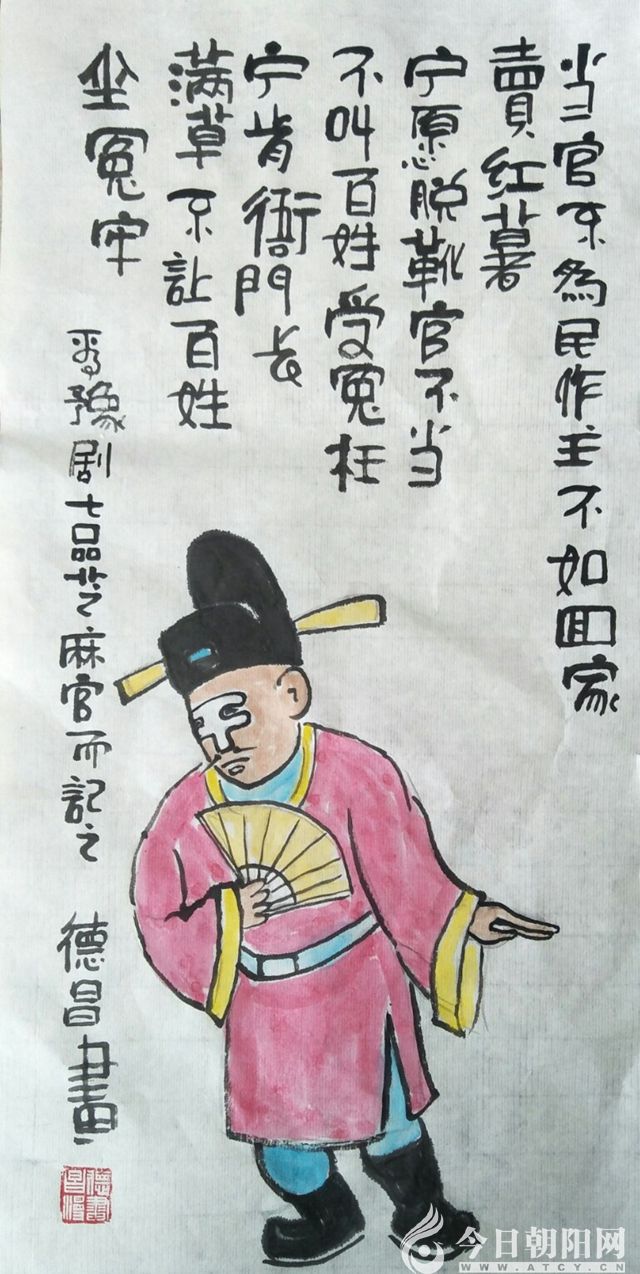 当官不為民作主不如回家
賣红薯
宁愿脱靴官不当
不叫百姓受冤枉
宁肯衙門长
满草不让百姓
坐冤牢
看豫剧七品芝麻官而記之 德昌畫
今日朝阳网
WWW.ATCY.CN